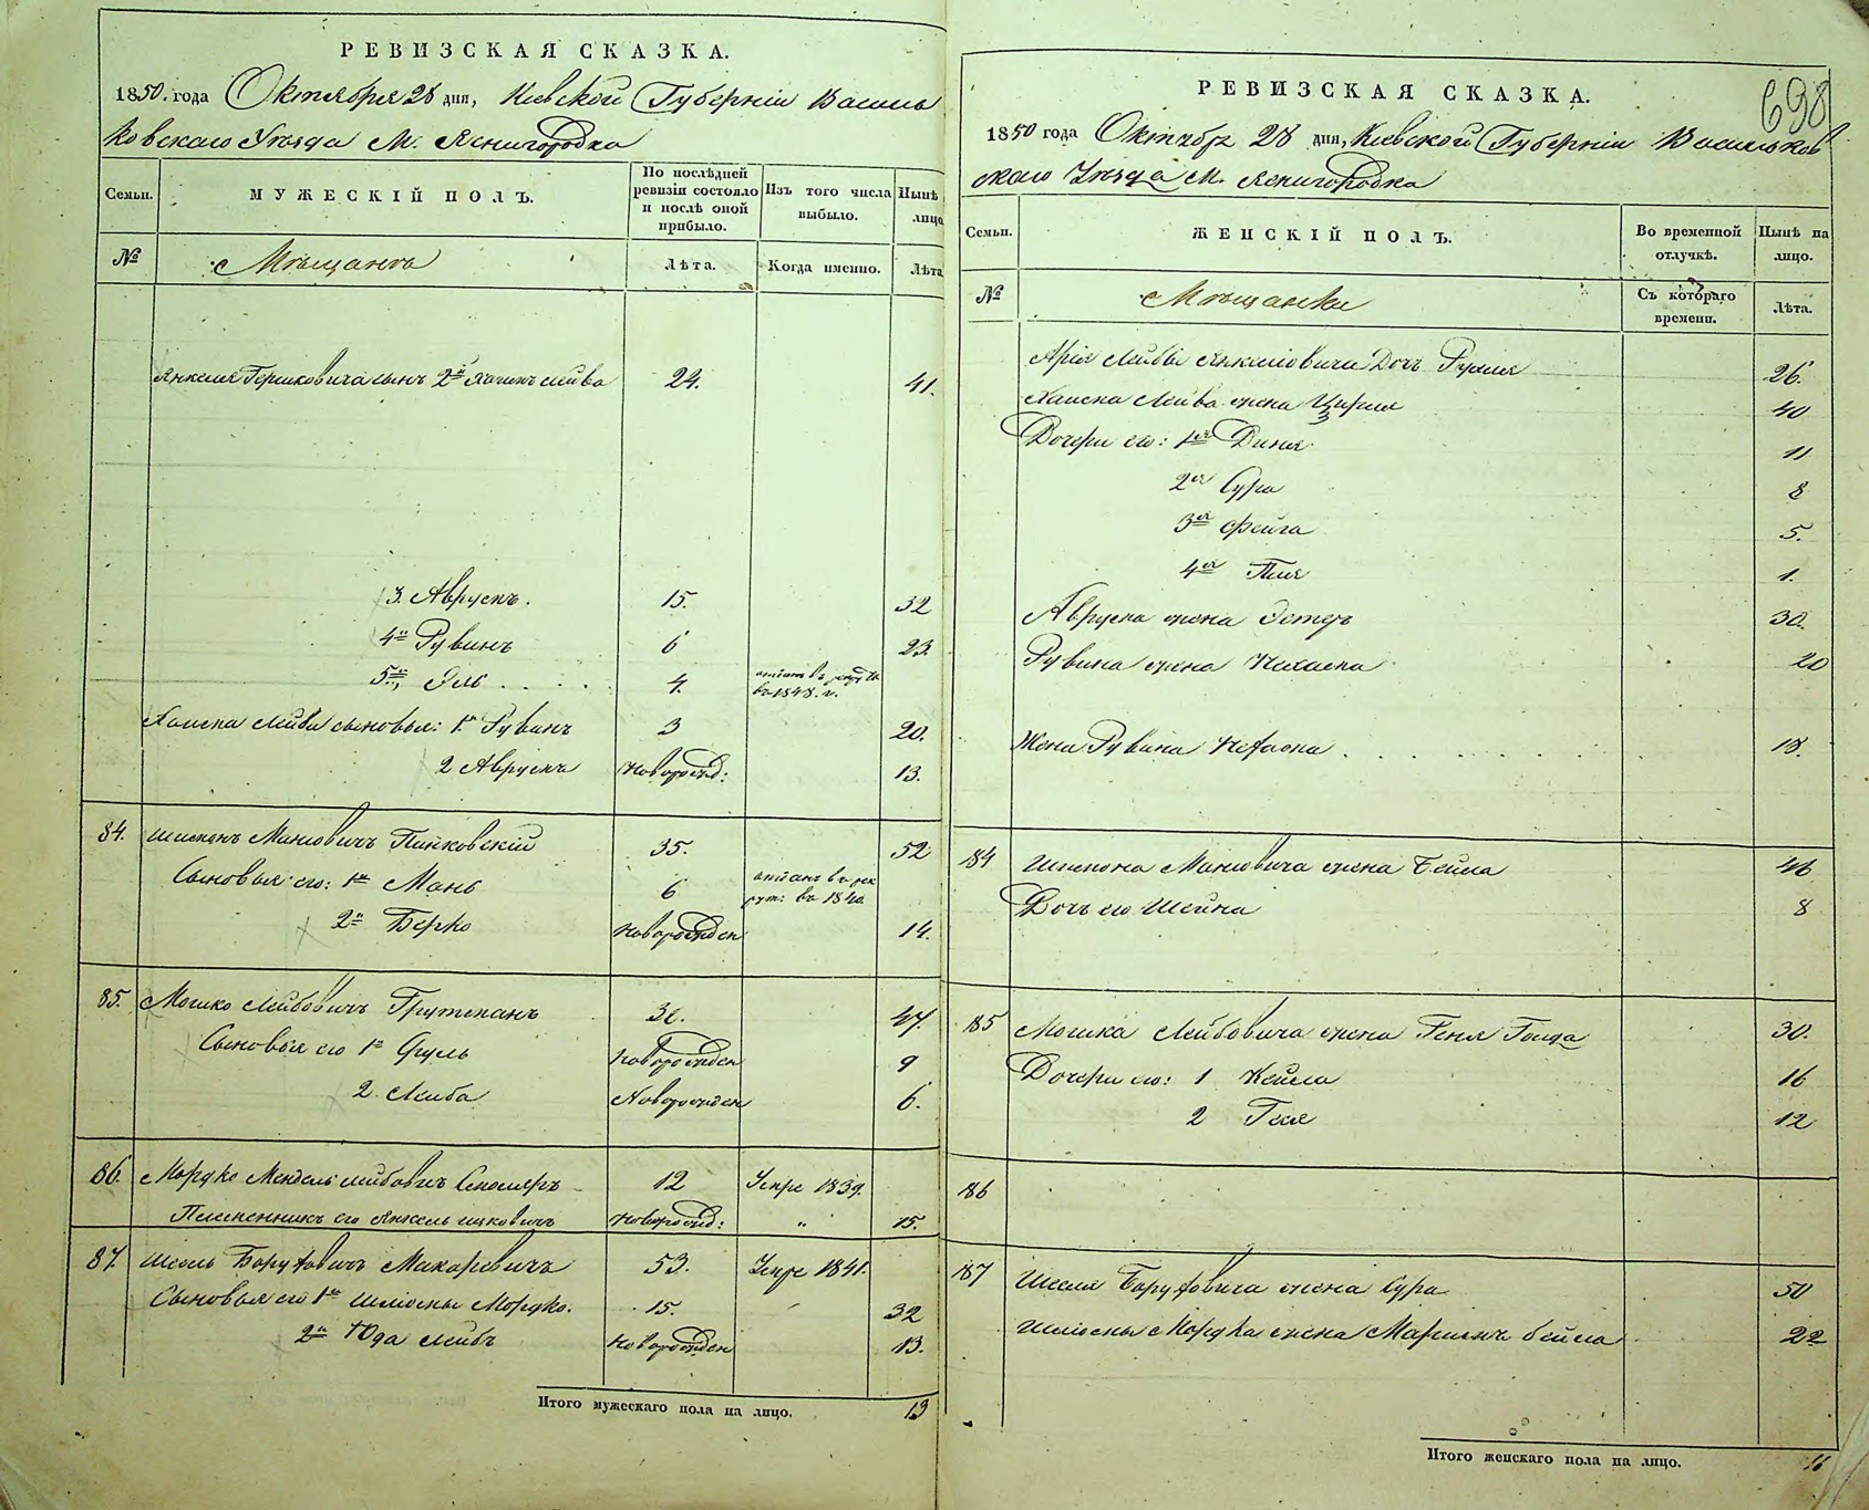 РЕВИЗСКАЯ СКАЗКА.
1850. года Октября 28 дня, Киевской Губернии Василь
ковскаго Уезда М. Яснигородка
Семьи. МУЖЕСКІЙ ПОЛЪ. По послѣдней ревизіи состояло и послѣ оной прибыло. Изъ того числа выбыло. Нынѣ лицо
№ Мѣщанъ Лѣта. Когда именно. Лѣта
Янкеля Гершковича сынъ 2й Хаимъ Лейба 24. 41.
3. Аврумъ. 15. 32
4й Рувинъ 6 23.
5й, Эль . . . . 4. отданъ въ рекруты въ 1848. г.
Хаима Лейбы сыновья: 1й Рувинъ 3 20.
2 Аврумъ Новорожд: 13.
84. Шимонъ Маньовичъ Паньковскій 35. 52
Сыновья его: 1й Мань 6 отданъ в рекрут: въ 1840.
2й Берко новорожден 14.
85. Мошко Лейбовичъ Грутманъ 30. 47.
Сыновья его 1й Сруль новорожден 9
2 Лейба Новорожден 6.
86. Мордко Мендель Лейбовичъ Столяръ 12 Умре 1839.
Племенникъ его Янкель Ицковичъ новорожд: " 15.
87. Шмель Боруховичъ Макаревичъ 53. Умре 1841.
Сыновья его 1й Шліома Мордко. 15. 32
2й Юда Лейбъ Новорожден 13.
Итого мужескаго пола на лицо. 13
698
РЕВИЗСКАЯ СКАЗКА.
1850 года Октября 28 дня, Киевской Губернии Васильков
скаго Уезда М. Яснигородка
Семьи. ЖЕНСКІЙ ПОЛЪ. Во временной отлучкѣ. Нынѣ на лицо.
№ Мѣщанки Съ котораго времени. Лѣта.
Арія Лейбы Янкеліовича Дочь Рухля 26.
Хаима Лейба жена Цирля 40
Дочери его: 1я Диня 11
2я Сура 8
3я Фейга 5.
4я Пия 1.
Аврума жена Эстеръ 30.
Рувина жена Нехама 20
Жена Рувина Нехама . . . . . . . 18.
84 Шимона Маньовича жена Бейла 46
Дочь его Шейна 8
85 Мошка Лейбовича жена Геня Голда 30.
Дочери его: 1 Кейла 16
2 Геся 12
86
87 Шмеля Боруховича жена Сура 50
Шліомы Мордка жена Маріямъ Бейла 22
Итого женскаго пола на лицо. 16